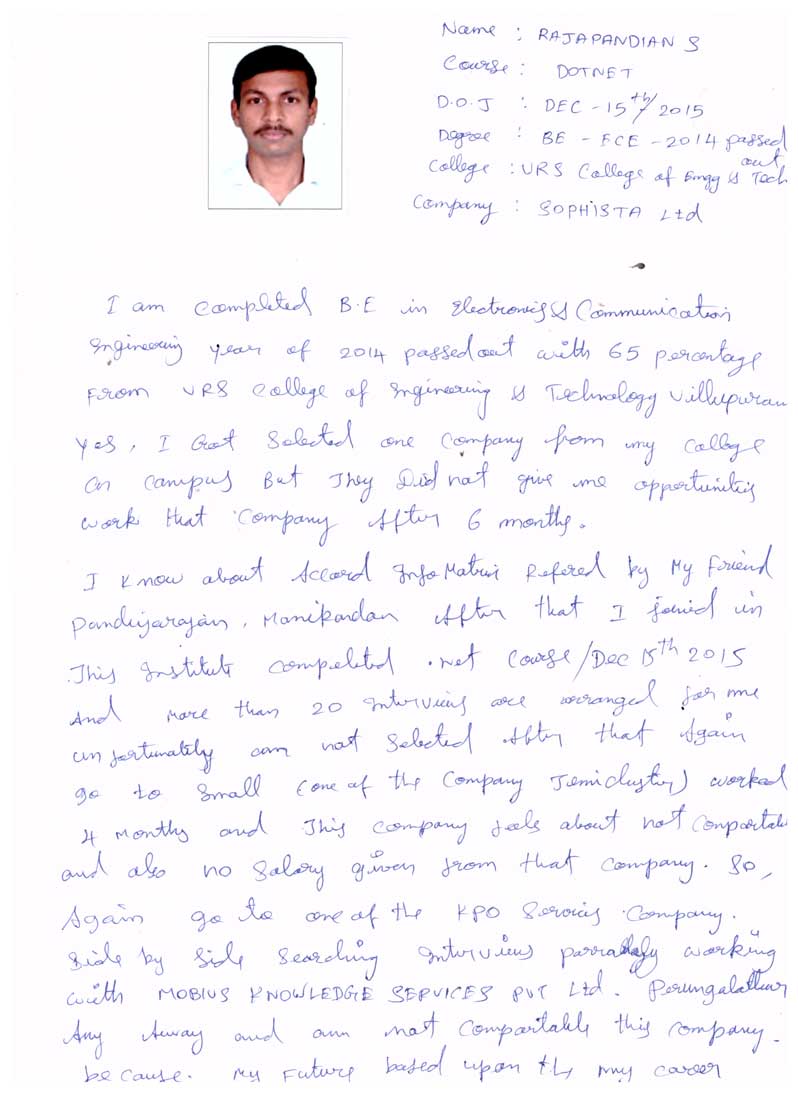 Name : RAJAPANDIAN S
Course : DOTNET
D.O.J : DEC - 15th/2015
Degree : BE - ECE - 2014 passed out
College : VRS College of Engg & Tech
Company : SOPHISTA Ltd
I am completed B.E in Electronics & Communication
Engineering year of 2014 passed out with 65 percentage
From VRS College of Engineering & Technology Villupuram
Yes, I Got Selected one company from my college
on campus But They Did not give me opportunities
work that company After 6 months.
I know about Accord Info Matrix Refered by My Friend
Pandiyarajan, Manikandan After that I joined in
This Institute completed .net Course/Dec 15th 2015
And more than 20 Interviews are arranged for me
unfortunately am not selected After that Again
go to Small (one of the Company Temicluster) worked
4 Months and This company feels about not Conportable
and also no Salary given from that company. So,
Again go to one of the KPO Services Company.
Side by Side Searching Interviews working
with MOBIUS KNOWLEDGE SERVICES PVT Ltd. Perungalathur
Any Away and am not Compartable this company.
because. My Future based upon the my career